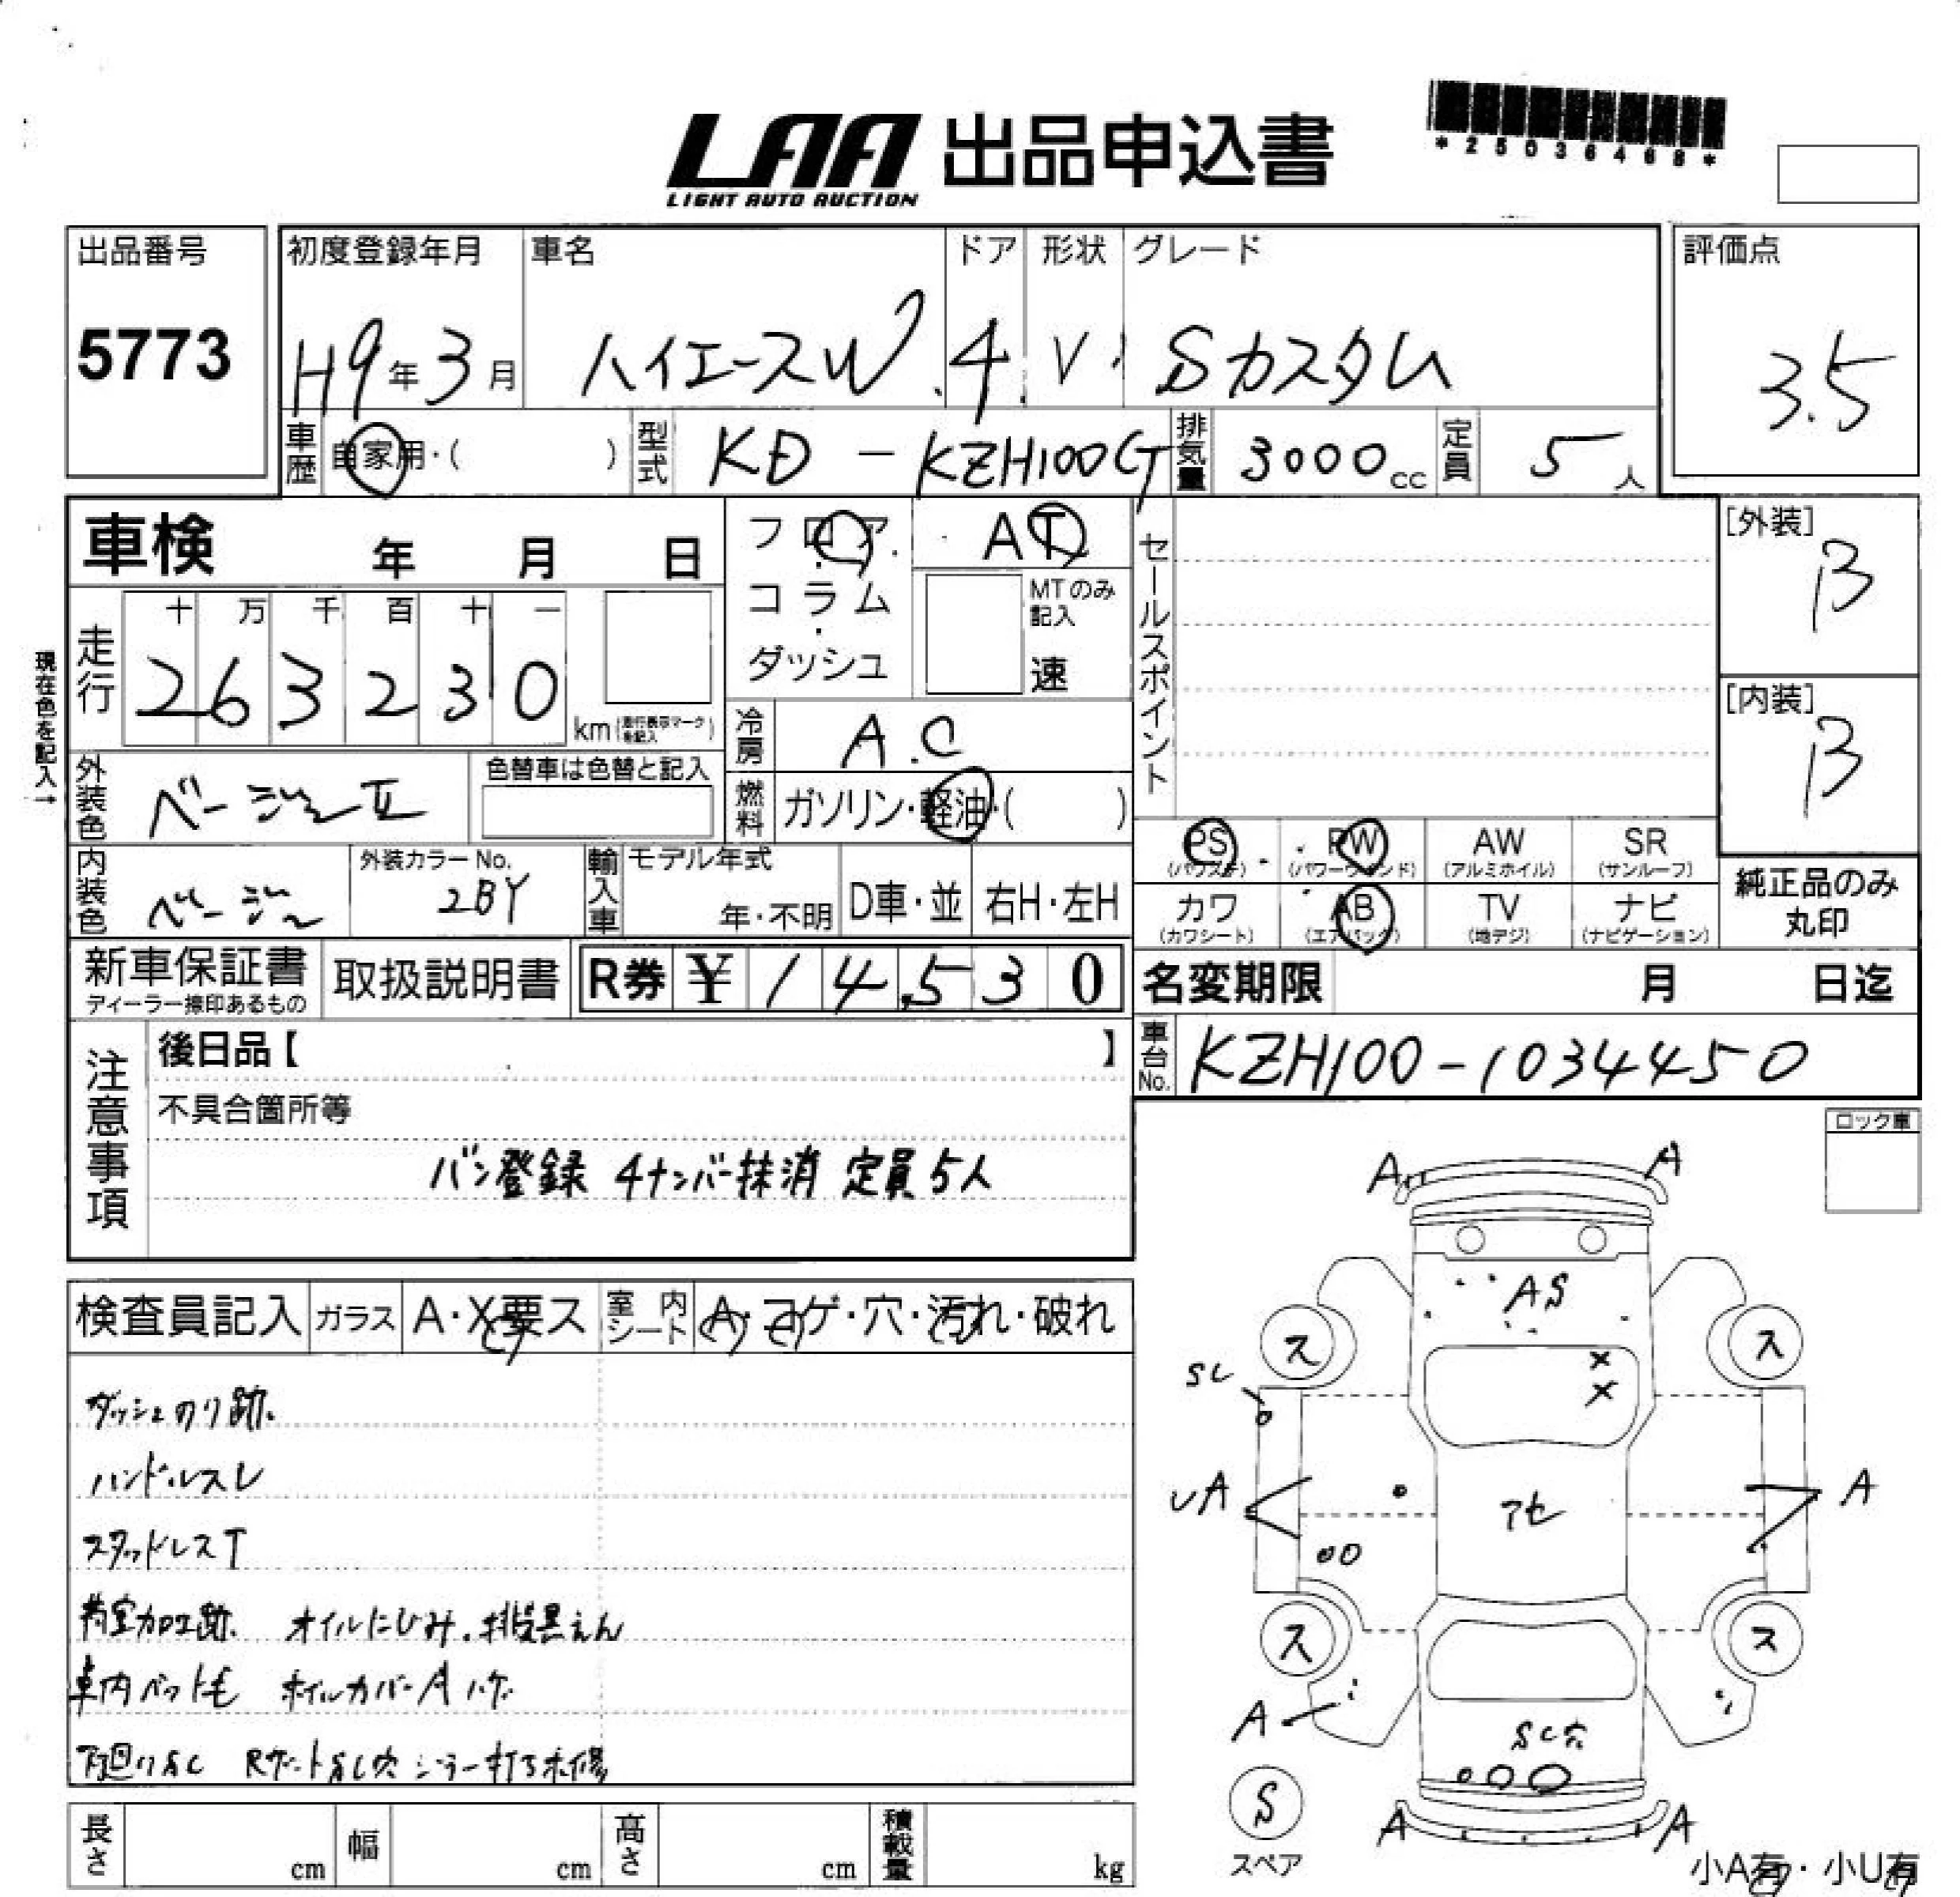 LAA 出品申込書
LIGHT AUTO AUCTION
*25036468*
出品番号
5773
初度登録年月 車名 ドア 形状 グレード
H9年3月 ハイエースW 4 V Sカスタム
評価点
3.5
車歴 自家用・( ) 型式 KD-KZH100G 排気量 3000cc 定員 5人
車検 年 月 日
フロア・コラム・ダッシュ
AT
MTのみ記入
速
セールスポイント
[外装]
B
[内装]
B
現在色を記入→
走行 十 万 千 百 十 一
263230 km (走行表示マークを記入)
冷房 A.C
外装色 ベージュII 色替車は色替と記入
燃料 ガソリン・軽油・( )
内装色 ベージュ 外装カラーNo. 2BY
輸入車 モデル年式 年・不明 D車・並 右H・左H
PS (パワステ) PW (パワーウインド) AW (アルミホイル) SR (サンルーフ)
カワ (カワシート) AB (エアバック) TV (地デジ) ナビ (ナビゲーション)
純正品のみ丸印
新車保証書 ディーラー捺印あるもの 取扱説明書 R券 ¥14,530
名変期限 月 日迄
車台No. KZH100-1034450
注意事項
後日品【 】
不具合箇所等
バン登録 4ナンバー抹消 定員5人
ロック車
検査員記入 ガラス A・X要ス 室内シート A・コゲ・穴・汚れ・破れ
ダッシュのり跡
ハンドルスレ
スタッドレスT
荷室加工跡 オイルにじみ 排気黒えん
車内ペット毛 ホイルカバーAハゲ
下廻りSC RゲートSC穴 シラー打ち補修
A A
AS
ス ス
X
X
SC
UA
アセ
A
ス ス
A
SC穴
S
スペア
A A
小A有・小U有
長さ cm 幅 cm 高さ cm 積載量 kg